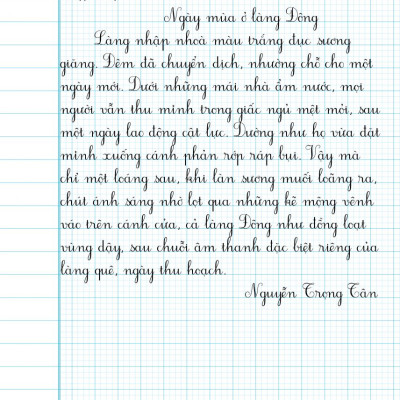 Ngày mùa ở làng Dông
Làng nhập nhoà màu trắng đục sương
giăng. Đêm đã chuyển dịch, nhường chỗ cho một
ngày mới. Dưới những mái nhà ẩm nước, mọi
người vẫn thu mình trong giấc ngủ mệt mỏi, sau
một ngày lao động cật lực. Dường như họ vừa đặt
mình xuống cánh phản rộp ráp bụi. Vậy mà
chỉ một loáng sau, khi làn sương muối loãng ra,
chút ánh sáng nhỏ lọt qua những kẽ mộng vênh
váo trên cánh cửa, cả làng Dông như đồng loạt
vùng dậy, sau chuỗi âm thanh đặc biệt riêng của
làng quê, ngày thu hoạch.
Nguyễn Trọng Tân